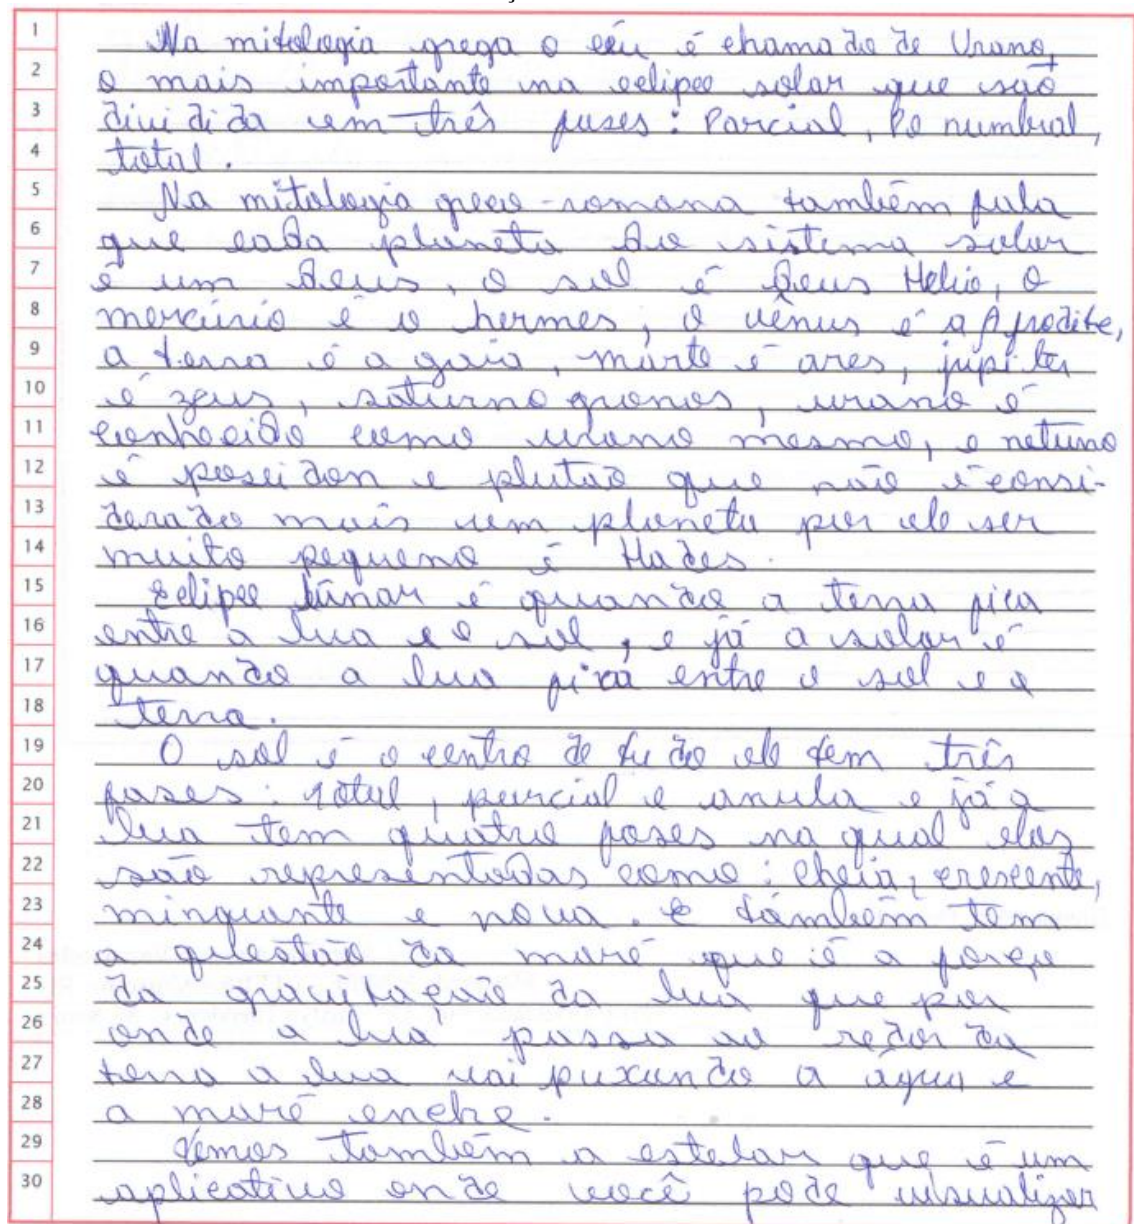 1 Na mitologia grega o céu é chamado de Urano,
2 o mais importante na eclipce solar que são
3 dividida em três fases: Parcial, Penumbral,
4 total.
5 Na mitologia greco-romana também fala
6 que cada planeta do sistema solar
7 é um deus, o sol é deus Helio, o
8 mercúrio é o hermes, o vênus é a Afrodite,
9 a terra é a gaia, marte é ares, jupiter
10 é zeus, saturno gronos, urano é
11 conhecido como urano mesmo, e netuno
12 é poseidon e plutão que não é consi-
13 derado mais um planeta por ele ser
14 muito pequeno é Hades.
15 Eclipce lunar é quando a terra fica
16 entre a lua e o sol, e já a solar é
17 quando a lua fica entre o sol e a
18 terra.
19 O sol é o centro de tudo ele tem três
20 fases: total, parcial e anula e já a
21 lua tem quatro fases na qual elas
22 são representadas como: cheia, crescente,
23 minguante e nova. E também tem
24 a questão da maré que é a força
25 da gravitação da lua que por
26 onde a lua passa ao redor da
27 terra a lua vai puxando a água e
28 a maré enche.
29 Temos também a estelar que é um
30 aplicativo onde você pode visualizar